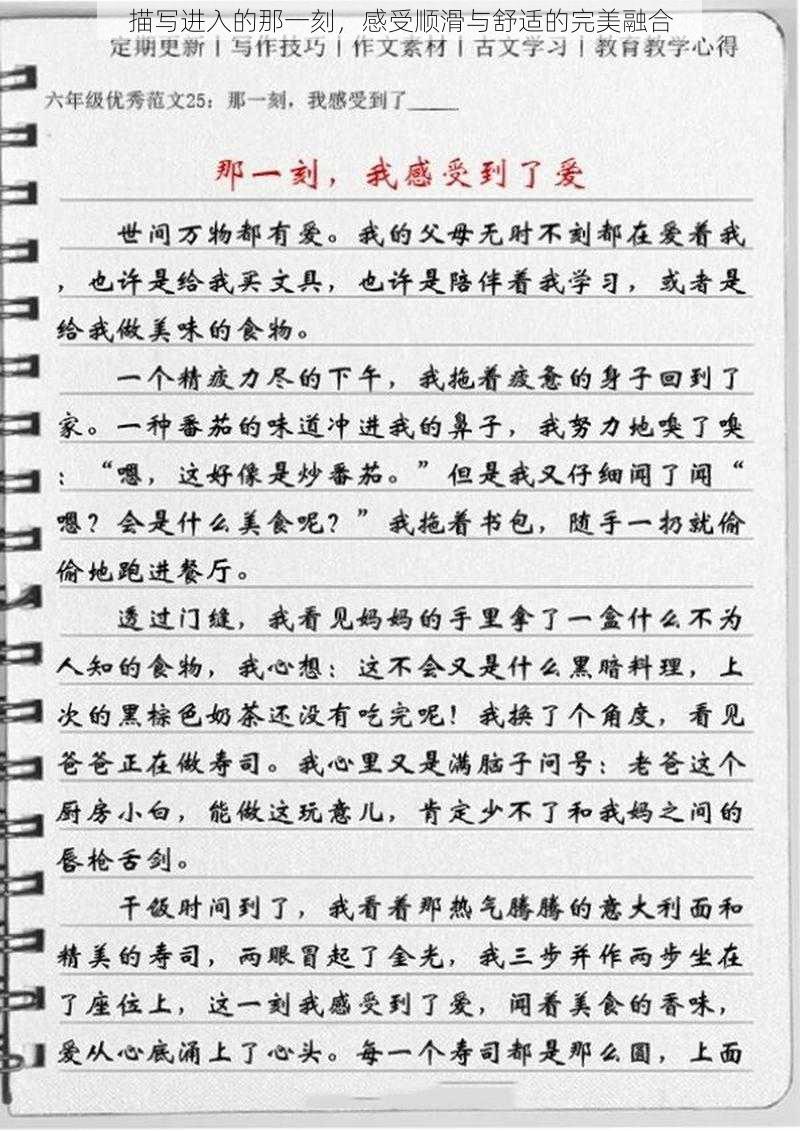 描写进入的那一刻，感受顺滑与舒适的完美融合
定期更新丨写作技巧丨作文素材丨古文学习丨教育教学心得
六年级优秀范文25：那一刻，我感受到了_____
那一刻，我感受到了爱
世间万物都有爱。我的父母无时不刻都在爱着我
，也许是给我买文具，也许是陪伴着我学习，或者是
给我做美味的食物。
一个精疲力尽的下午，我拖着疲惫的身子回到了
家。一种番茄的味道冲进我的鼻子，我努力地嗅了嗅
：“嗯，这好像是炒番茄。”但是我又仔细闻了闻“
嗯？会是什么美食呢？”我拖着书包，随手一扔就偷
偷地跑进餐厅。
透过门缝，我看见妈妈的手里拿了一盒什么不为
人知的食物，我心想：这不会又是什么黑暗料理，上
次的黑棕色奶茶还没有吃完呢！我换了个角度，看见
爸爸正在做寿司。我心里又是满脑子问号：老爸这个
厨房小白，能做这玩意儿，肯定少不了和我妈之间的
唇枪舌剑。
干饭时间到了，我看着那热气腾腾的意大利面和
精美的寿司，两眼冒起了金光，我三步并作两步坐在
了座位上，这一刻我感受到了爱，闻着美食的香味，
爱从心底涌上了心头。每一个寿司都是那么圆，上面